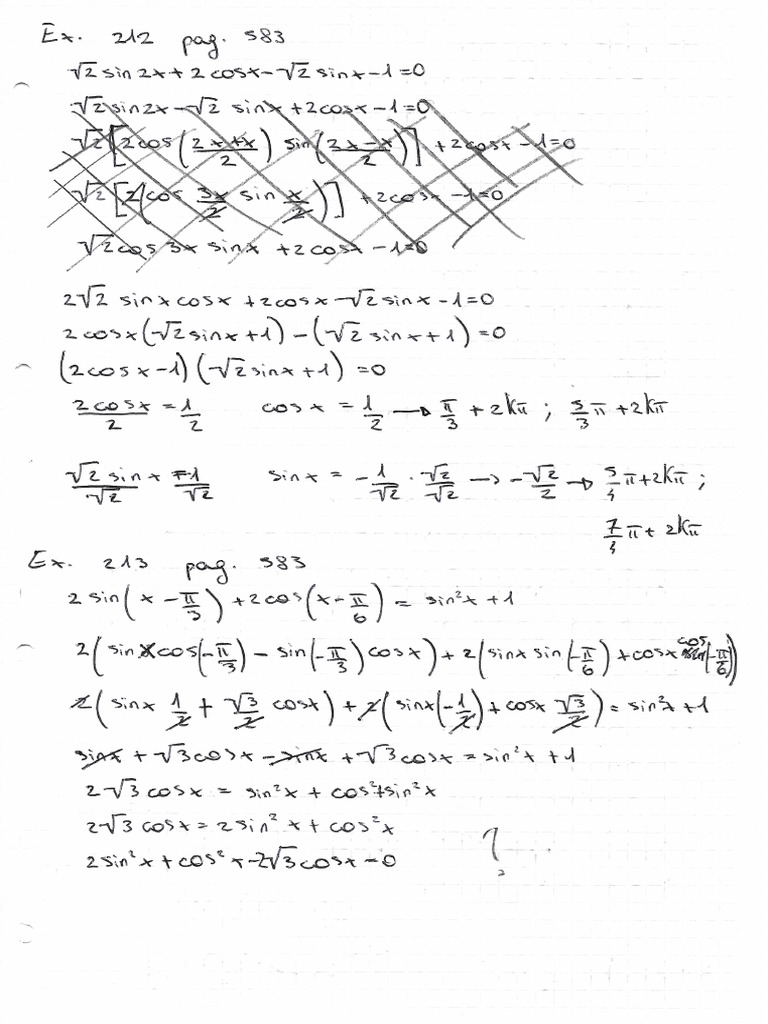 Ex. 212 pag. 583
√2 sin2x + 2cosx - √2 sinx - 1 = 0
√2 sin2x - √2 sinx + 2cosx - 1 = 0
√2 [2cos((2x+x)/2) sin((2x-x)/2)] + 2cosx - 1 = 0
√2 [2(cos 3x/2 sin x/2)] + 2cosx - 1 = 0
√2 cos 3x sinx + 2cosx - 1 = 0
2√2 sinx cosx + 2cosx - √2 sinx - 1 = 0
2cosx(√2 sinx + 1) - (√2 sinx + 1) = 0
(2cosx - 1)(√2 sinx + 1) = 0
2cosx/2 = 1/2 cosx = 1/2 → π/3 + 2Kπ ; 5/3 π + 2Kπ
√2 sinx/√2 = -1/√2 sinx = -1/√2 · √2/√2 → -√2/2 → 5/4 π + 2Kπ ;
7/4 π + 2Kπ
Ex. 213 pag. 583
2 sin(x - π/3) + 2cos(x - π/6) = sin²x + 1
2(sinx cos(-π/3) - sin(-π/3) cosx) + 2(sinx sin(-π/6) + cosx cos(-π/6))
2(sinx 1/2 + √3/2 cosx) + 2(sinx(-1/2) + cosx √3/2) = sin²x + 1
sinx + √3 cosx - sinx + √3 cosx = sin²x + 1
2√3 cosx = sin²x + cos²+sin²x
2√3 cosx = 2sin²x + cos²x
2sin²x + cos²x - 2√3 cosx = 0 ?